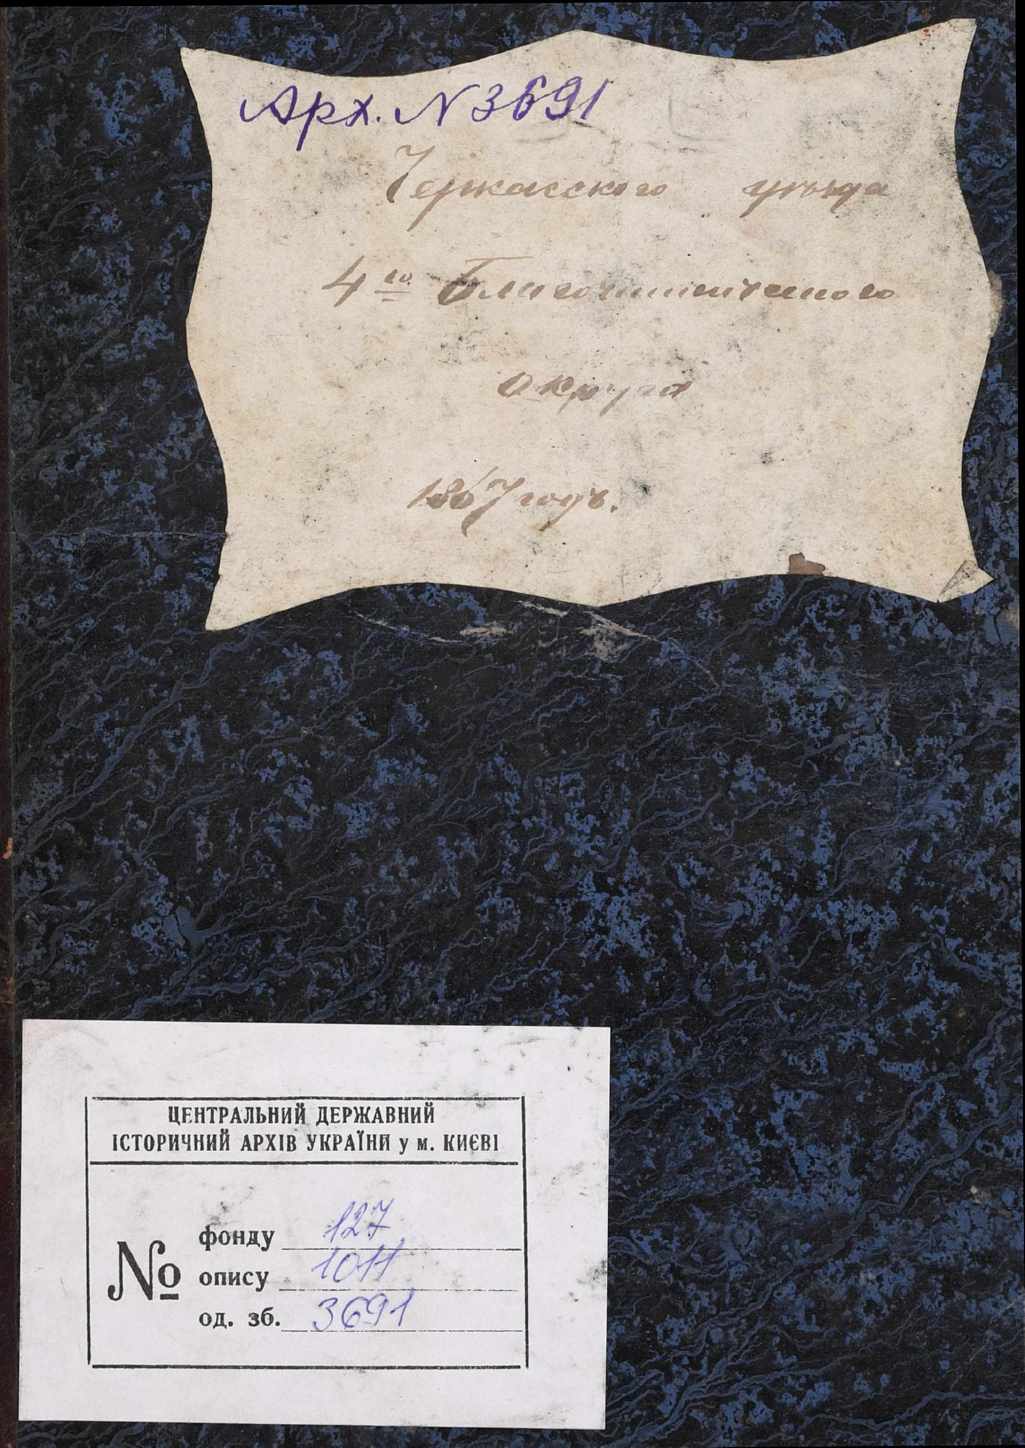 Арх. N 3691
Черкасского уѣзда
4го Благочинническаго
округа
1867 годъ.
ЦЕНТРАЛЬНИЙ ДЕРЖАВНИЙ
ІСТОРИЧНИЙ АРХІВ УКРАЇНИ у м. КИЄВІ
№
фонду 127
опису 1011
од. зб. 3691